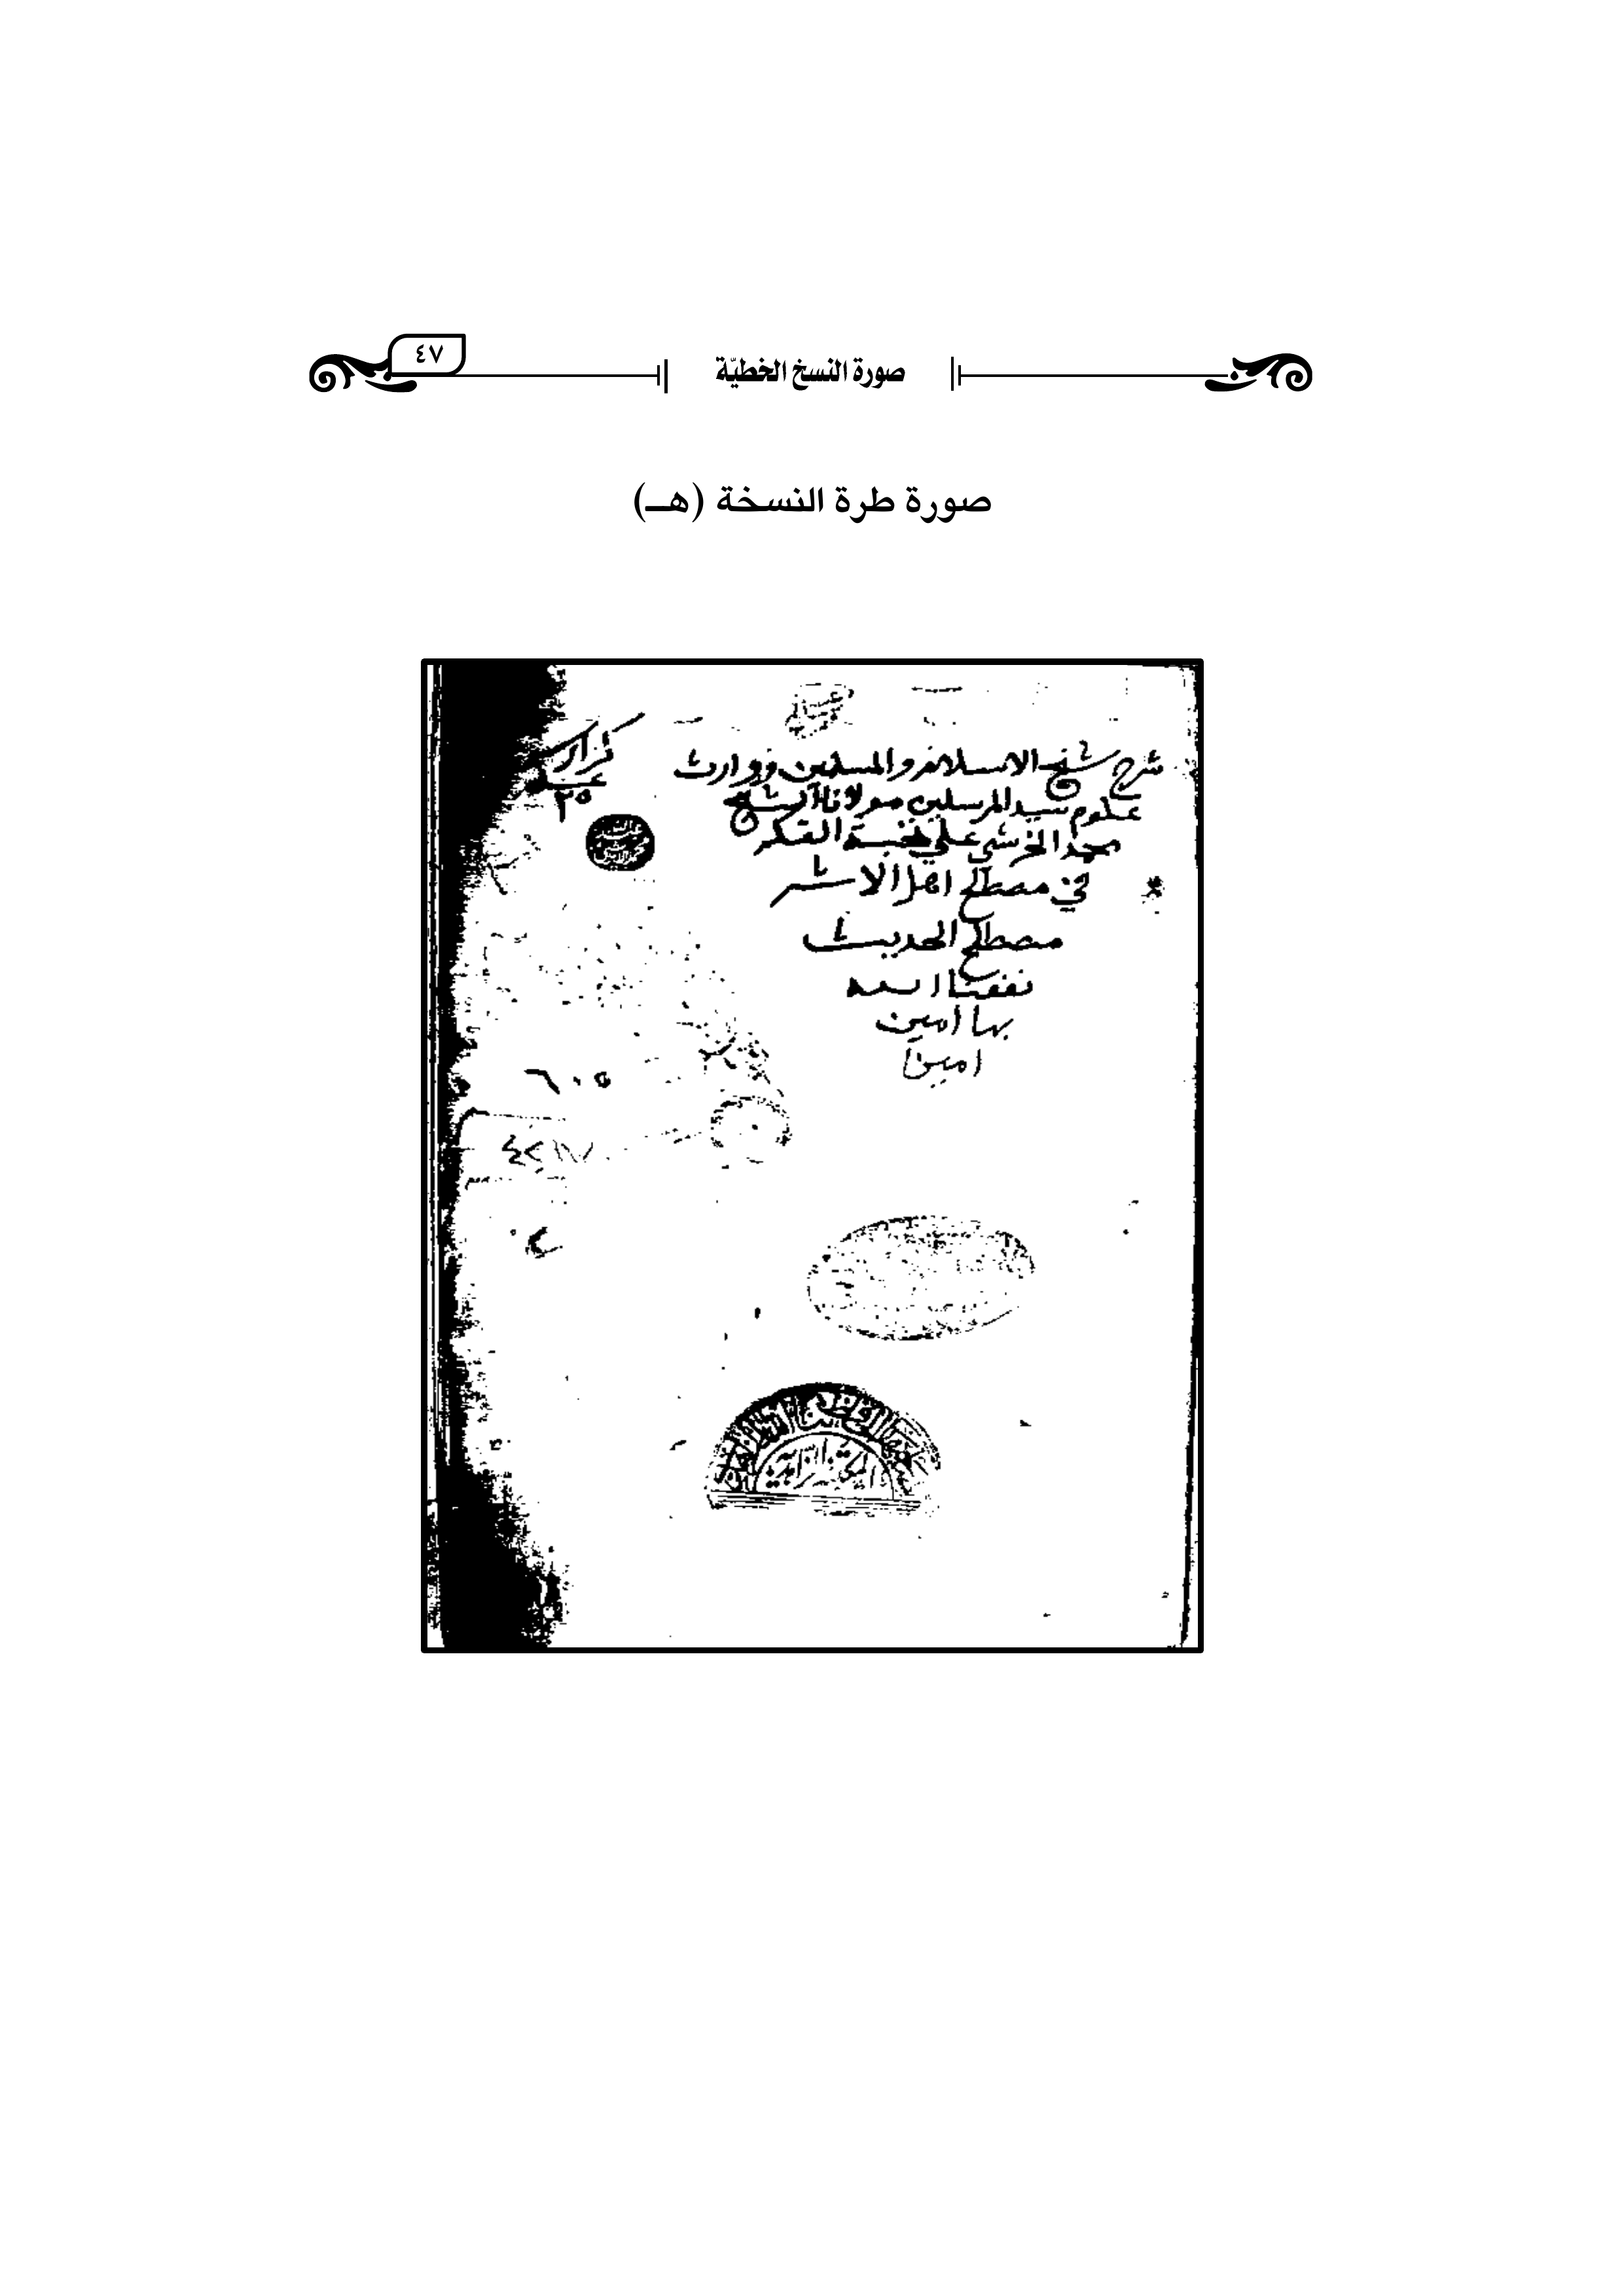 صورة النسخ الخطيّة
٤٧
صورة طرة النسخة (هـ)
شرح شيخ الاسلام والمسلمين ووارث
علوم سيد المرسلين مولانا الشيخ
محمد الخرشي علي نخبة الفكر
في مصطلح اهل الاثر
مصطلح الحديث
نفعنا الله
بها امين
امين
٢٥
٦٠٥